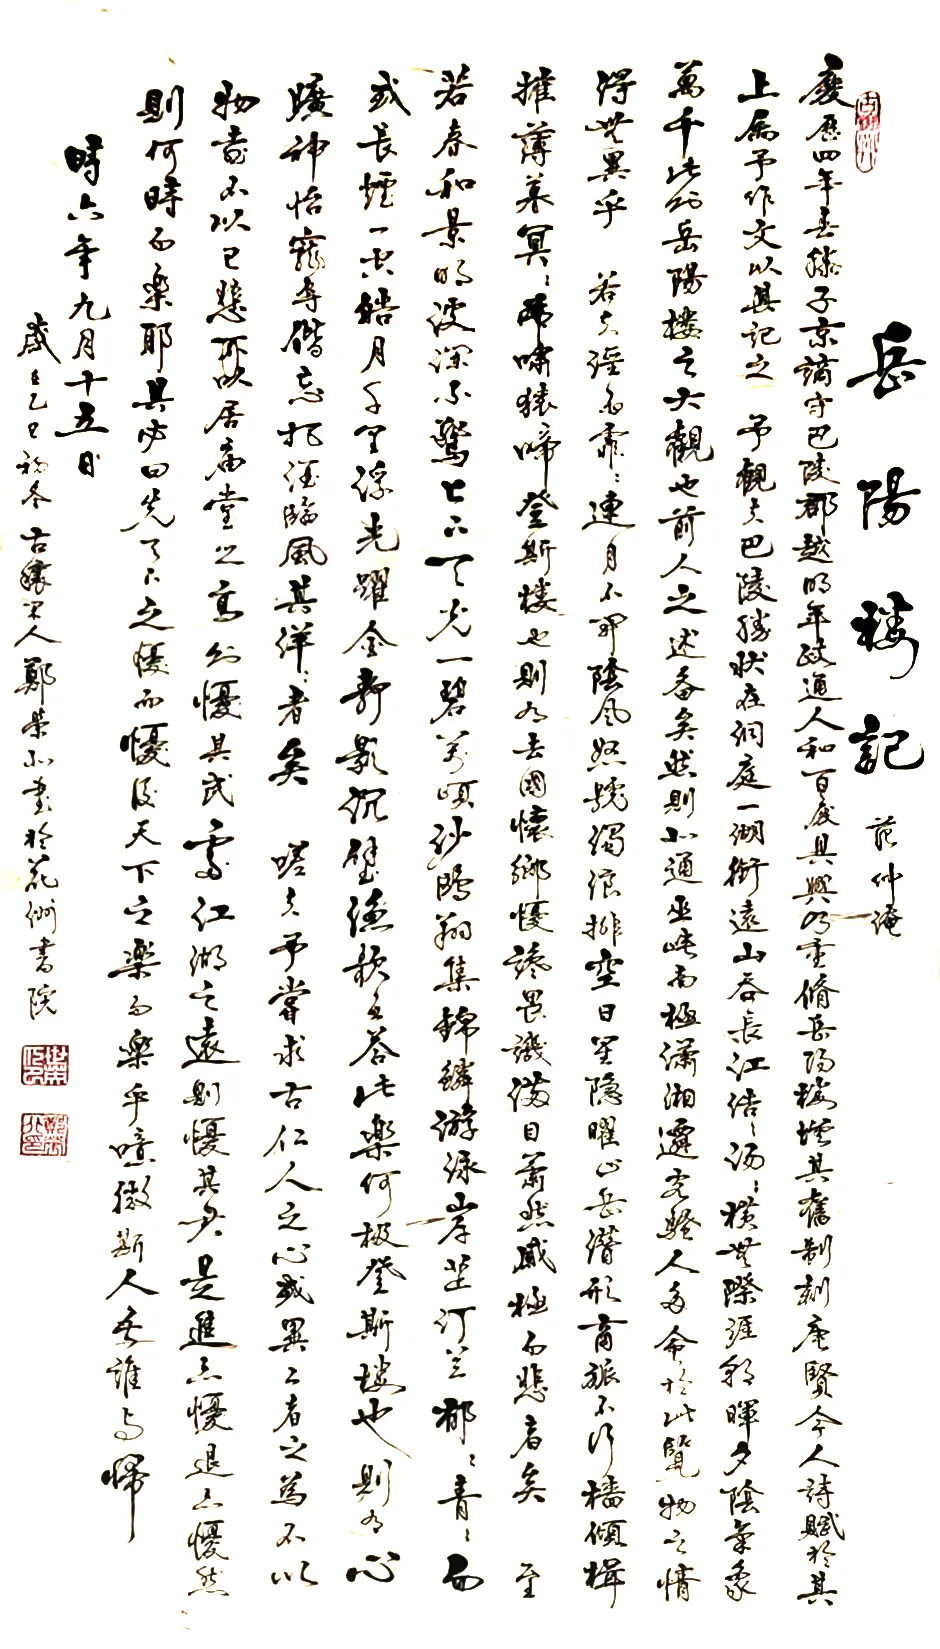 岳陽樓記 范仲淹
慶歷四年春滕子京謫守巴陵郡越明年政通人和百废具興乃重脩岳陽樓增其舊制刻唐賢今人詩賦於其
上屬予作文以其記之 予觀夫巴陵勝狀在洞庭一湖銜遠山吞長江浩〻湯〻橫無際涯朝暉夕陰氣象
萬千此乃岳陽樓之大觀也前人之述备矣然則北通巫峽南極瀟湘遷客騷人多會於此覽物之情
得無異乎 若夫淫雨霏〻連月不開陰風怒號濁浪排空日星隐曜山岳潛形商旅不行檣傾楫
摧薄暮冥〻虎嘯猿啼登斯樓也則有去國懷鄉憂讒畏譏滿目蕭然感極而悲者矣 至
若春和景明波瀾不驚上下天光一碧萬頃沙鷗翔集錦鱗游泳岸芷汀兰郁〻青〻而
或長煙一空皓月千里浮光躍金靜影沉璧漁歌互答此樂何极登斯樓也則有心
曠神怡寵辱偕忘把酒臨風其洋〻者矣 嗟夫予嘗求古仁人之心或異二者之為不以
物喜不以己悲居廟堂之高則憂其民處江湖之遠則憂其君是進亦憂退亦憂然
則何時而樂耶其必曰先天下之憂而憂後天下之樂而樂乎噫微斯人吾誰與歸
時六年九月十五日
歲在乙巳初冬古穰 人鄭榮 書於花洲書院